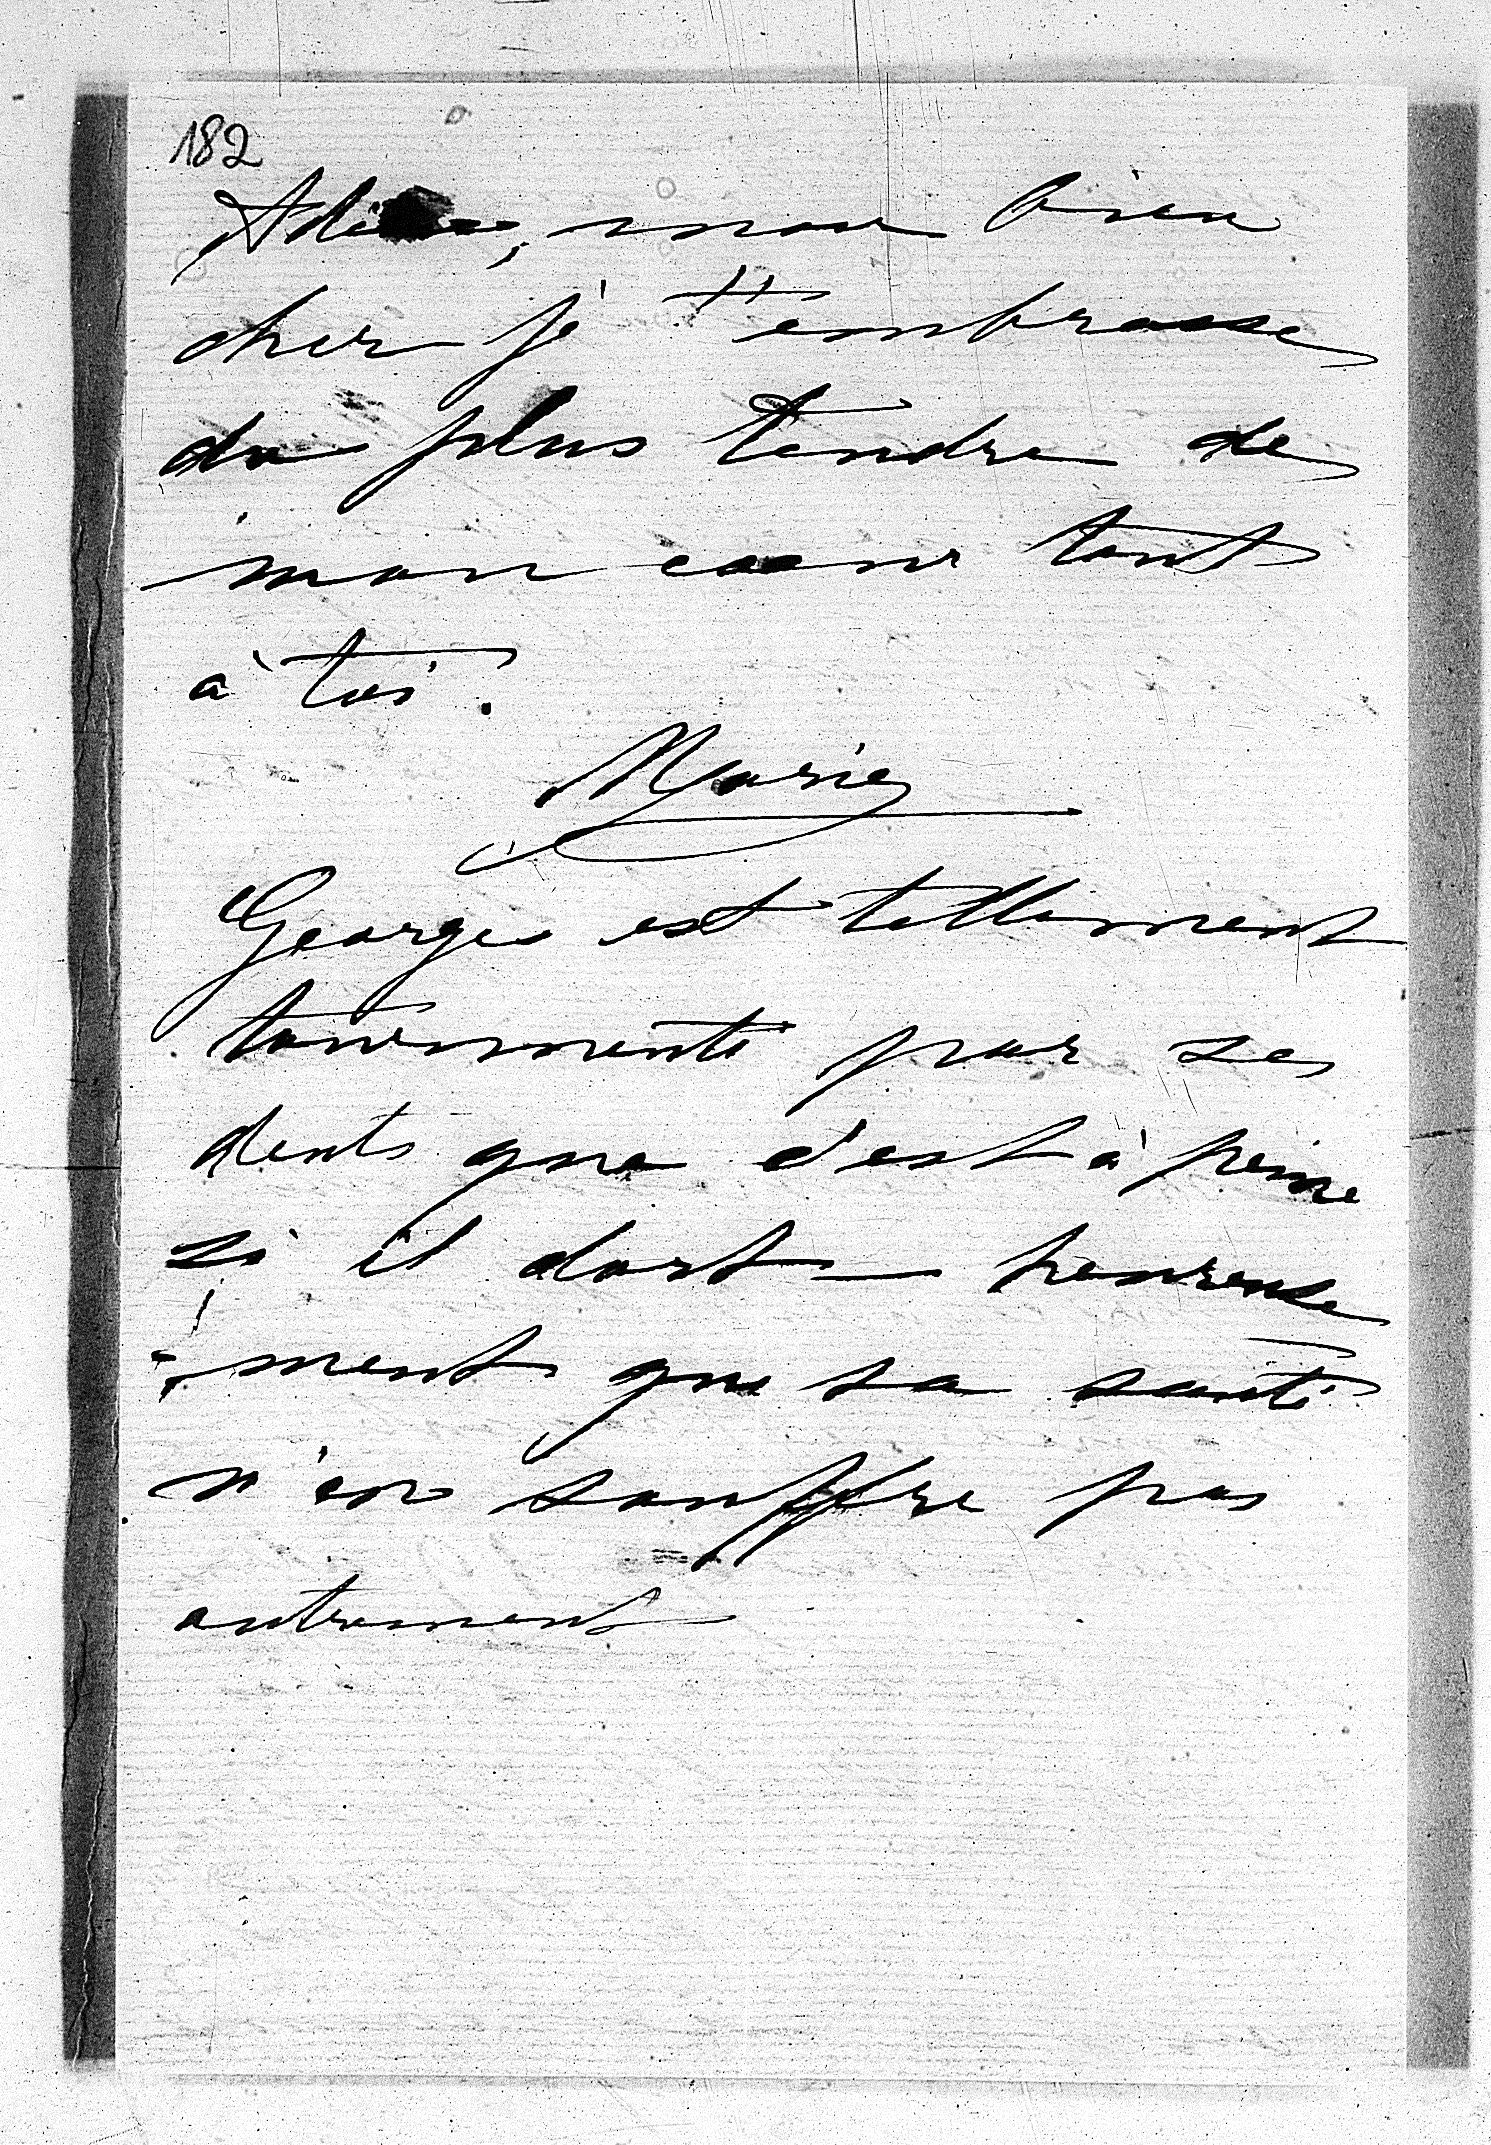 182
Adieu, mon bien
cher je t'embrasse
du plus tendre de
mon coeur tout
à toi.
Marie
Georges est tellement
tourmenté par ses
dents que c'est à peine
si il dort — heureuse
-ment que sa santé
n'en souffre pas
autrement